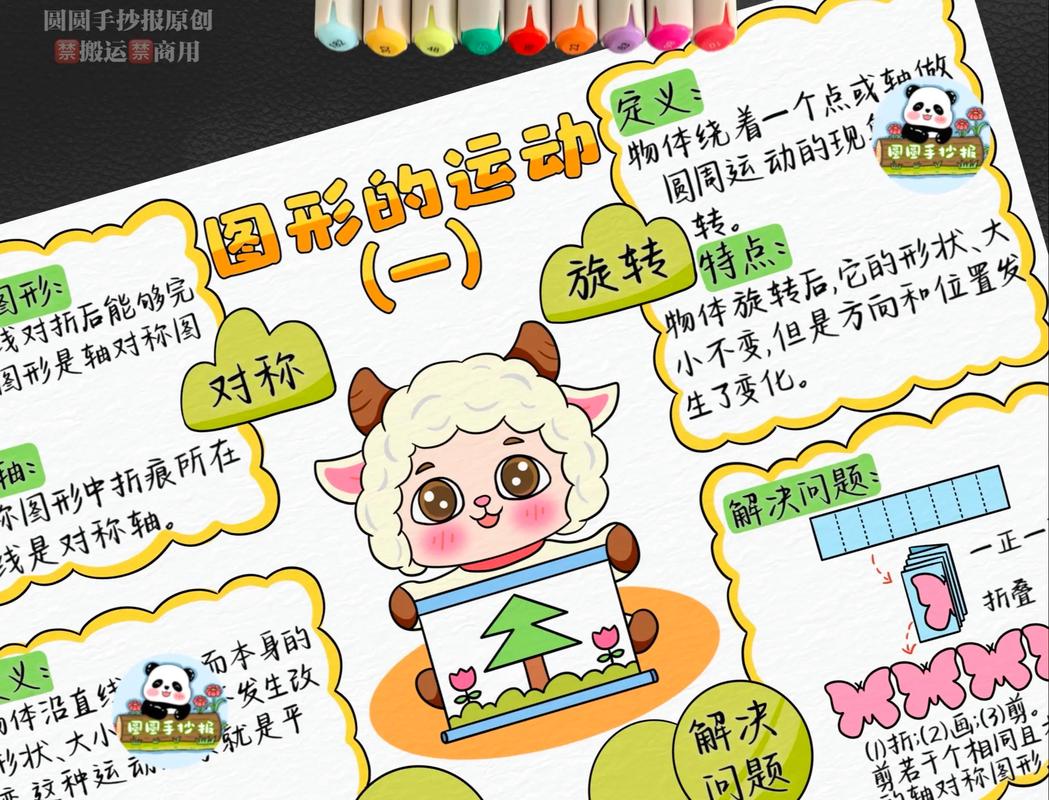 圆圆手抄报原创
禁搬运禁商用
图形的运动
(一)
图形:
线对折后能够完
图形是轴对称图
轴:
称图形中折痕所在
线是对称轴。
对称
旋转
定义:
物体绕着一个点或轴做
圆周运动的现
转。
特点:
物体旋转后,它的形状、大
小不变,但是方向和位置发
生了变化。
圆圆手抄报
解决问题:
一正一
折叠
(1)折;(2)画;(3)剪。
剪若干个相同且
的轴对称图形
义:
物体沿直线 而本身的
形状、大小 发生改
变,这种运动 就是平
圆圆手抄报
解决
问题